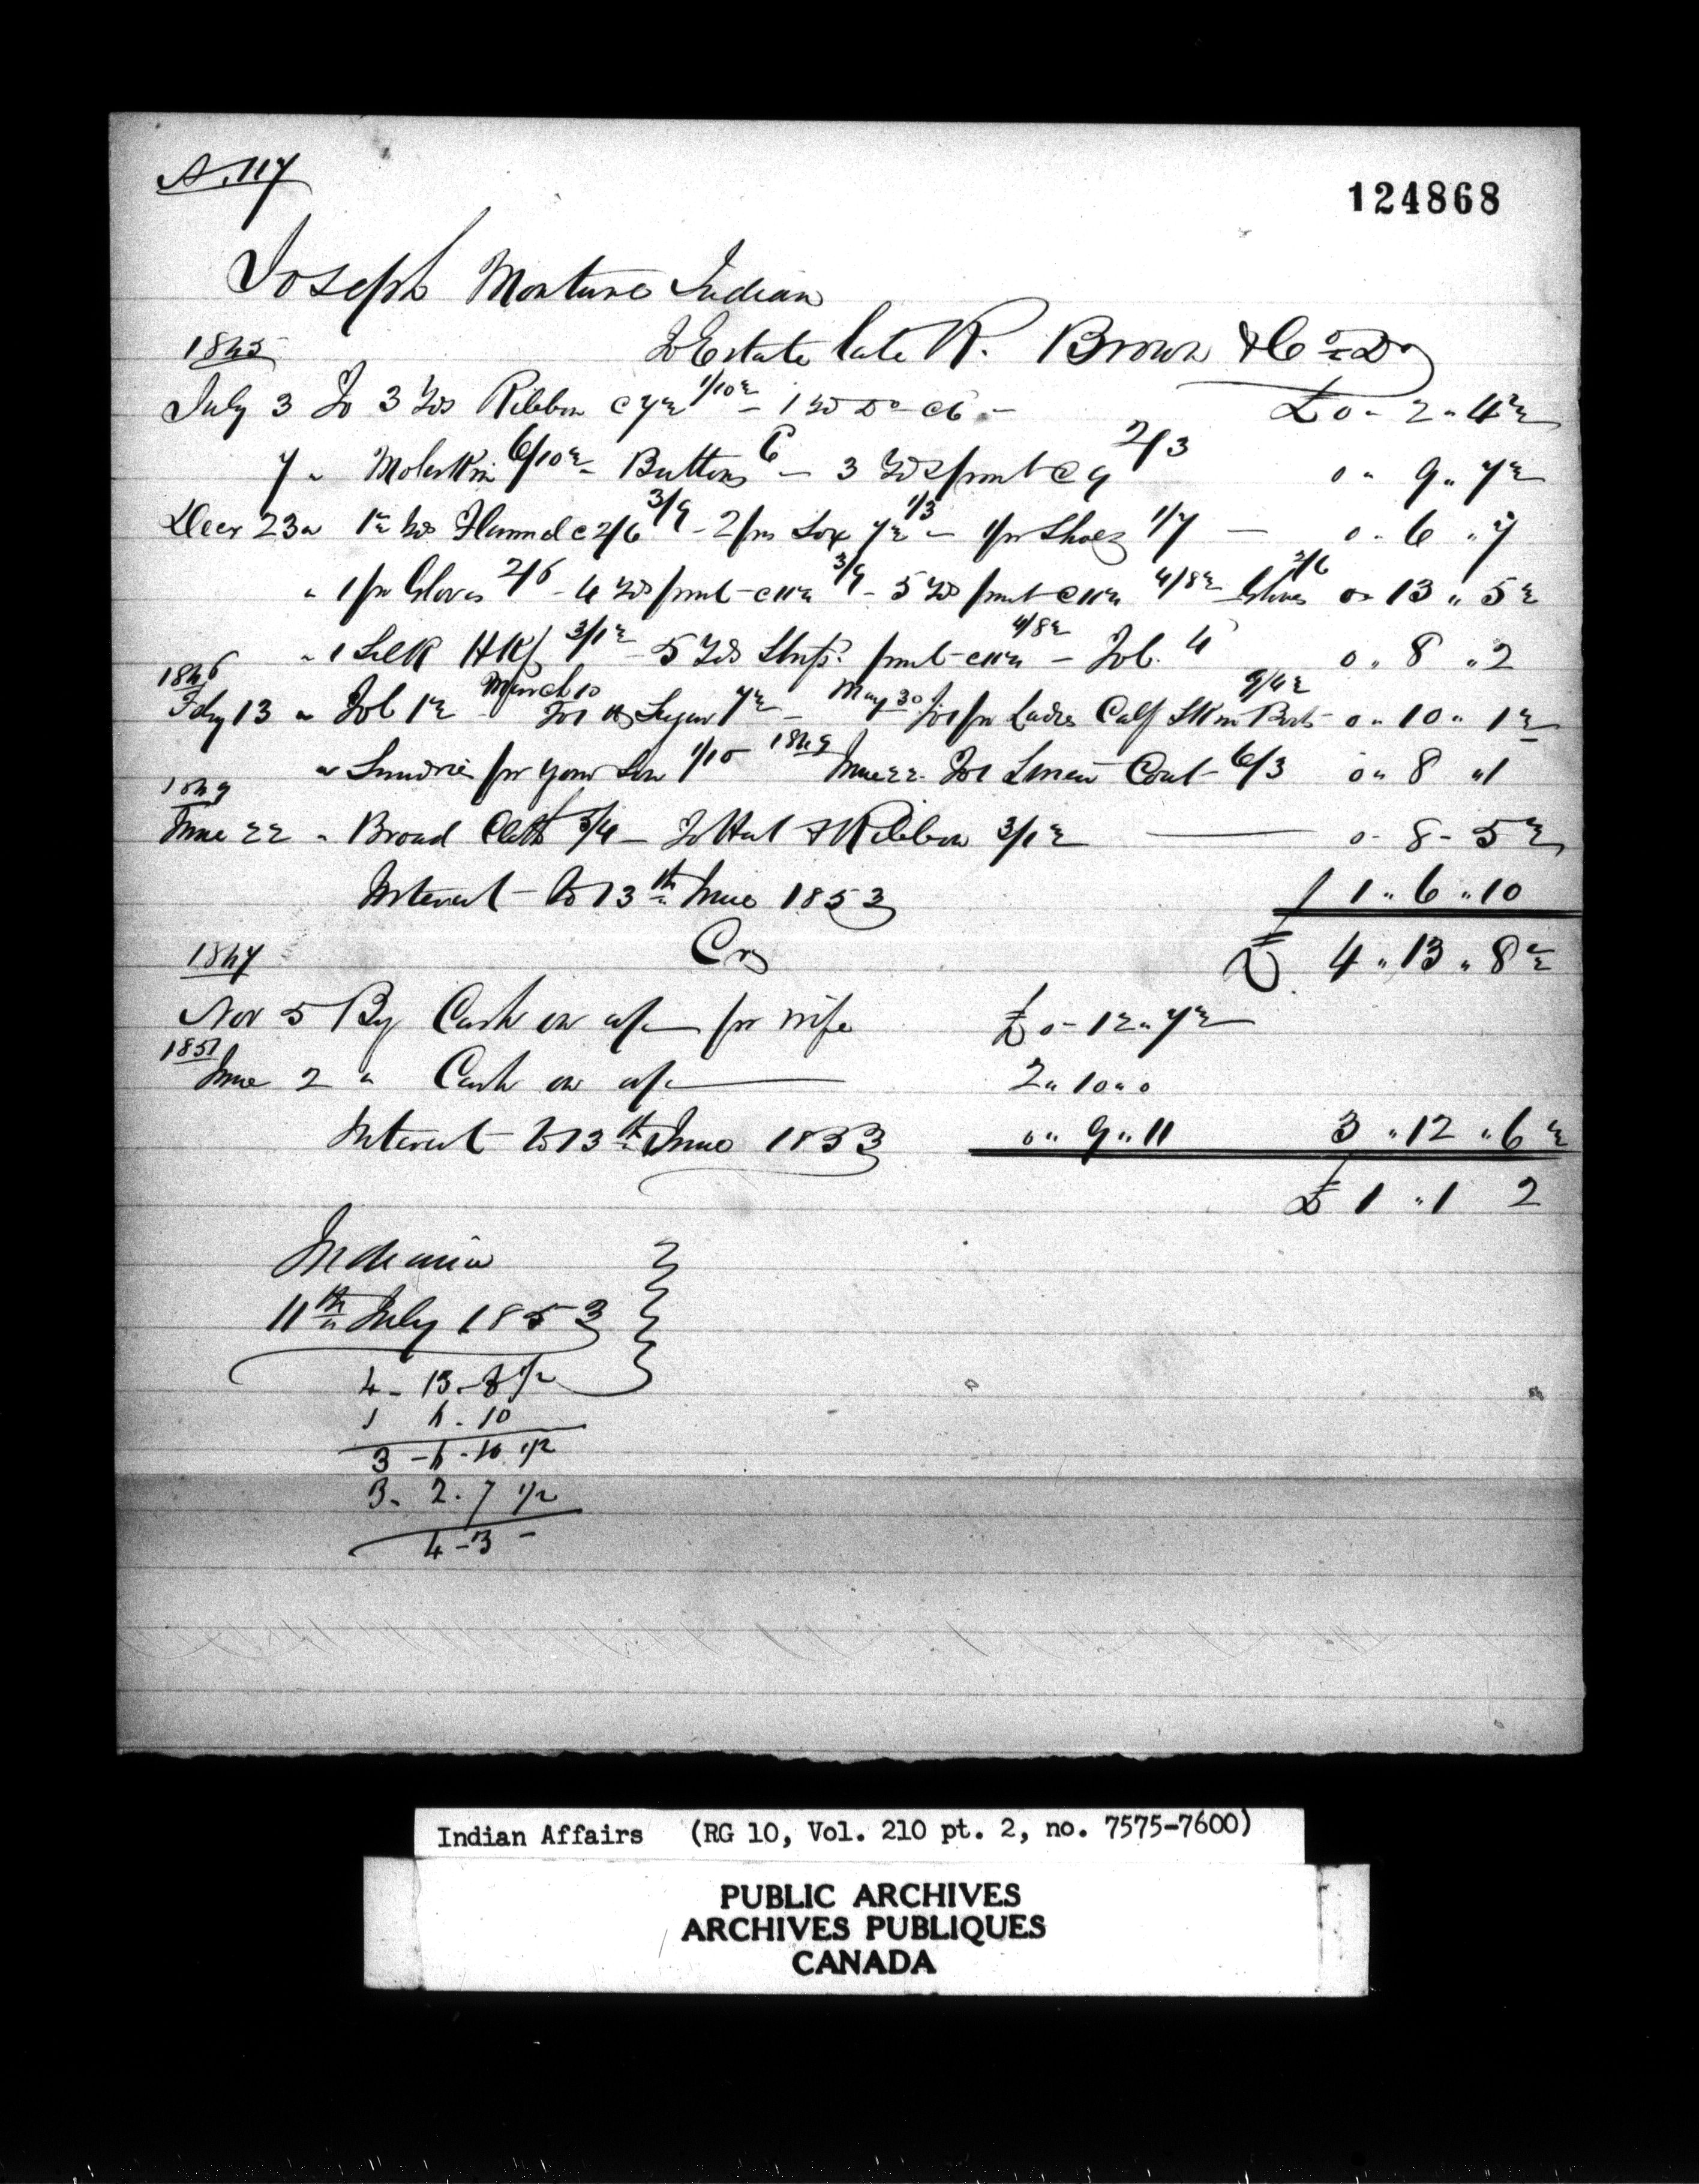 A.117
124868
Joseph Monture Indian
1845 To Estate late R. Brown & Co Dr
July 3 To 3 Yds Ribbon @ 7½ 1/10½ - 1 Yd Do @ 6 - £0 - 2 " 4½
7 " Moleskin 6/10½ - Buttons 6 - 3 Yds print @ 9 2/3 0 " 9 " 7½
Decr 23 " 1½ Yds Flannel @ 2/6 3/9 - 2 prs Sox 7½ 1/3 - 1 pr Shoes 1/7 - 0 " 6 " 7
" 1 pr Gloves 2/6 - 4 Yds print @ 11¼ 3/9 - 5 Yds print @ 11¼ 4/8½ Gloves 2/6 0 " 13 " 5½
" 1 Silk Hkf 3/1½ 5 Yds print @ 11¼ 4/8½ - Tob. 4 0 " 8 " 2
1846
Feby 13 " Tob 1½ - March 10 To 1 lb Sugar 7½ - May 30 To 1 pr Ladies Calf Skin Boots 9/4½ 0 " 10 " 1½
" Sundries pr your Son 1/10 1849 June 22 To 1 Linen Coat 6/3 0 " 8 " 1
1849
June 22 " Broad Cloth 5/4 - To Hat & Ribbon 3/1½ 0 - 8 - 5½
Interest to 13th June 1853 1 " 6 " 10
1847 Cr £ 4 " 13 " 8½
Nov 5 By Cash on a/c pr wife £0 - 12 " 7½
1851
June 2 " Cash on a/c 2 " 10 " 0
Interest to 13th June 1853 0 " 9 " 11 3 " 12 " 6½
£ 1 " 1 2
Indiana
11th July 1853
4 - 13 - 8 1/2
1 6 - 10
3 - 6 - 10 1/2
3 - 2 - 7 1/2
4 - 3 -
Indian Affairs (RG 10, Vol. 210 pt. 2, no. 7575-7600)
PUBLIC ARCHIVES
ARCHIVES PUBLIQUES
CANADA